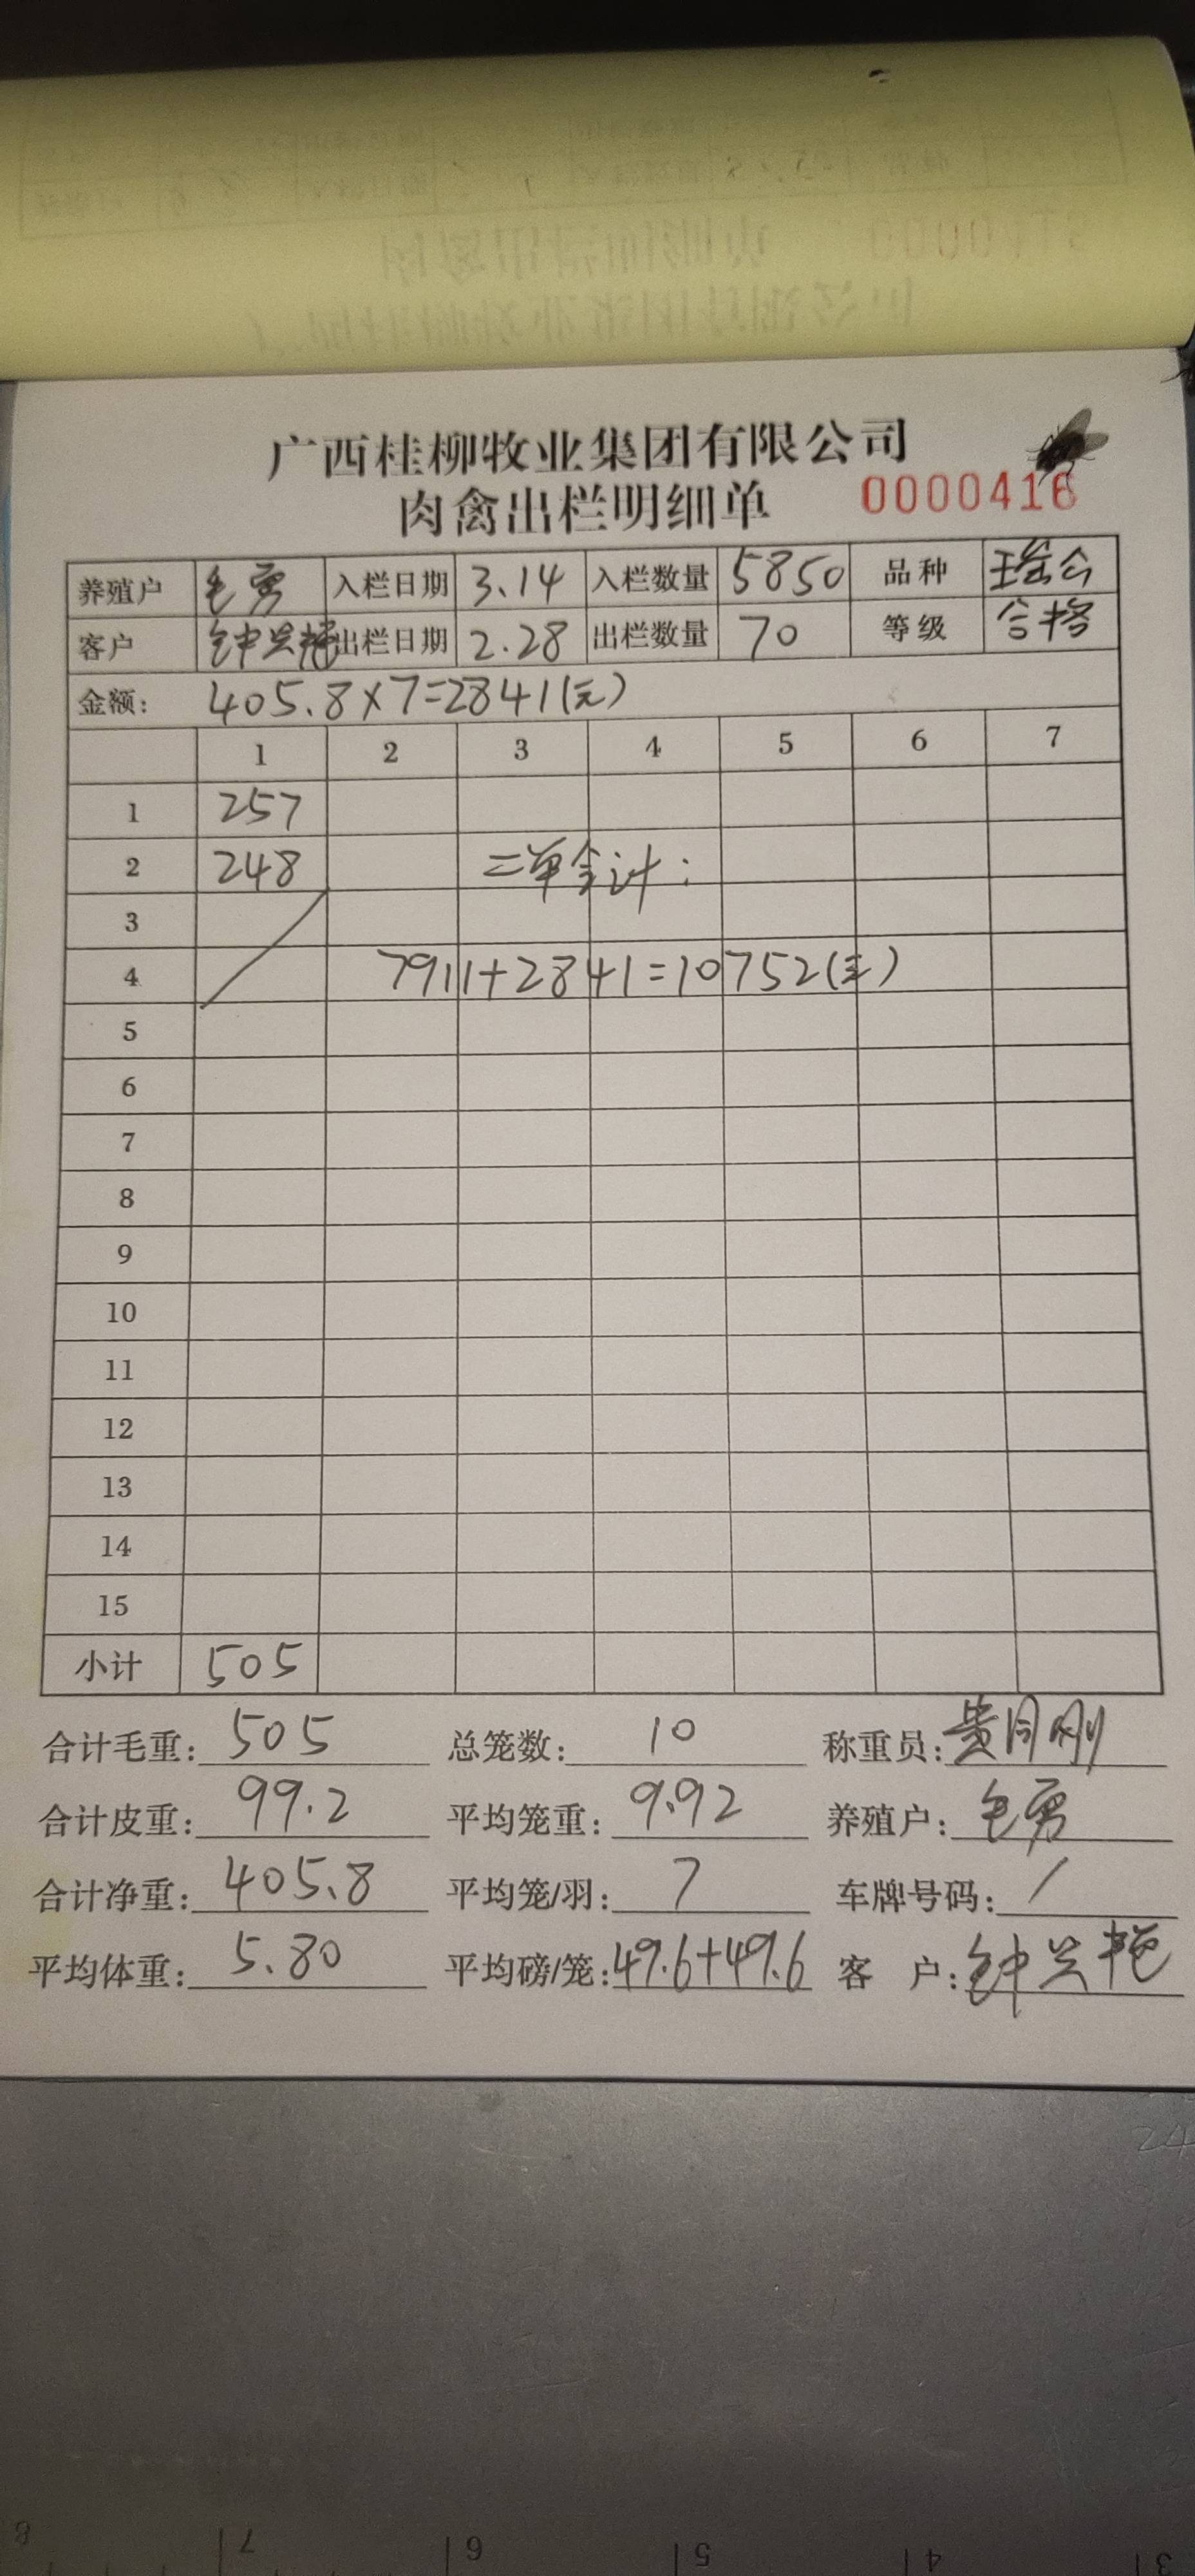 广西桂柳牧业集团有限公司
肉禽出栏明细单 0000416
养殖户 毛勇 入栏日期 3.14 入栏数量 5850 品种
客户 钟兴艳 出栏日期 2.28 出栏数量 70 等级 合格
金额: 405.8×7=2841(元)
1 2 3 4 5 6 7
1 257
2 248 二单合计:
3
4 7911+2841=10752(元)
5
6
7
8
9
10
11
12
13
14
15
小计 505
合计毛重: 505 总笼数: 10 称重员: 黄刚
合计皮重: 99.2 平均笼重: 9.92 养殖户: 毛勇
合计净重: 405.8 平均笼/羽: 7 车牌号码: /
平均体重: 5.80 平均磅/笼: 49.6+49.6 客 户: 钟兴艳
24
8 7 6 5 4 3